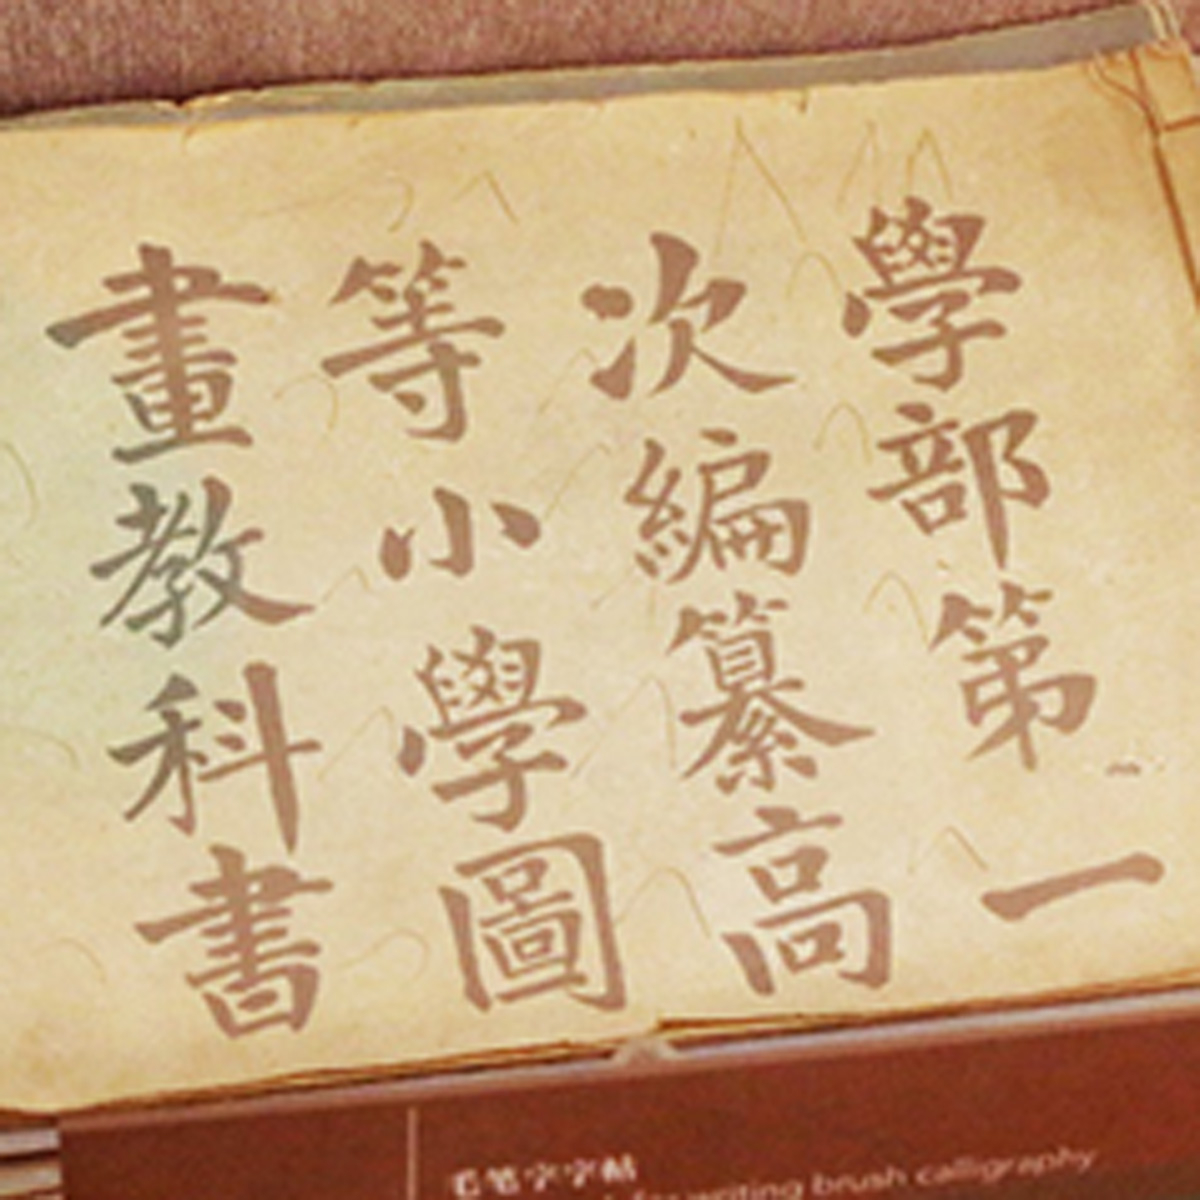 學部第一
次編纂高
等小學圖
畫教科書
毛笔字字帖
for writing brush calligraphy